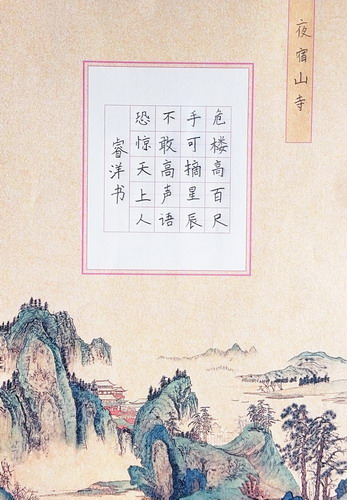 夜宿山寺
危楼高百尺
手可摘星辰
不敢高声语
恐惊天上人
睿洋书